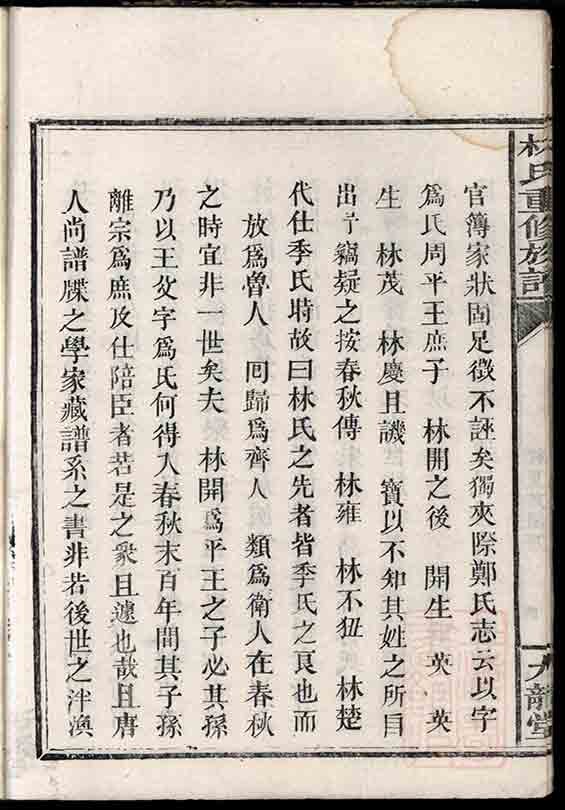 林氏重修族譜
一
九龍堂
官簿家狀固足徵不誣矣獨夾際鄭氏志云以字
爲氏周平王庶子 林開之後 開生 英 英
生 林茂 林慶且譏 寶以不知其姓之所自
出予竊疑之按春秋傳 林雍 林不狃 林楚
代仕季氏時故曰林氏之先者皆季氏之良也而
放爲魯人 回歸爲齊人 類爲衛人在春秋
之時宜非一世矣夫 林開爲平王之子必其孫
乃以王父字爲氏何得入春秋末百年間其子孫
離宗爲庶及仕陪臣者若是之衆且遽也哉且唐
人尚譜牒之學家藏譜系之書非若後世之泮渙